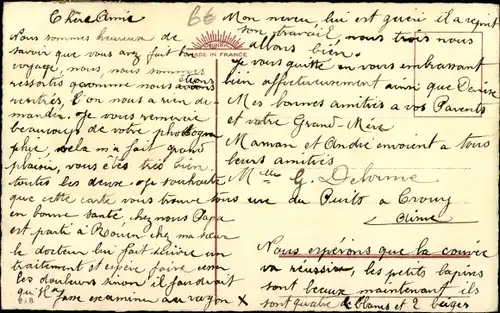 Chère Amie
Nous sommes heureux de
savoir que vous avez fait bon
voyage, nous, nous sommes
ressortis comme nous étions
rentrés, l'on nous a rien de-
mander. Je vous remercie
beaucoup de votre photogra
phie, cela m'a fait grand
plaisir, vous êtes très bien
toutes les deux. Je souhaite
que cette carte vous trouve tous
en bonne santé, chez nous Papa
est parti à Rouen chez ma sœur
le docteur lui fait suivre un
traitement et espère faire cesser
les douleurs sinon il faudrait
qu'il se fasse examiner au rayon X
66
MADE IN FRANCE
Mon neveu, lui est guéri il a reprit
son travail, nous trois nous
allons bien.
Je vous quitte en vous embrassant
bien affectueusement ainsi que Denise
Mes bonnes amitiés a vos Parents
et votre Grand-Mère
Maman et André envoient a tous
leurs amitiés
Melle G. Delorme
rue du Puits a Crouy
Aisne
Nous espérons que la couvée
va réussir, les petits lapins
sont beaux maintenant ils
sont quatre blancs et 2 beiges